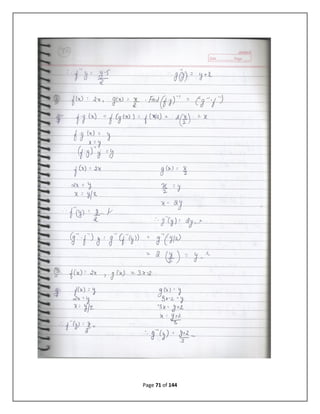 ∴ f⁻¹y = (y-5)/2    g⁻¹(y) = y+2
f(x) = 2x, g(x) = x/2 find (f·g)⁻¹ = (g⁻¹·f⁻¹)
f·g(x) = f(g(x)) = f(x/2) = 2(x/2) = x
f·g(x) = y
x = y
(f·g)⁻¹y = y
f(x) = 2x    g(x) = x/2
2x = y    x/2 = y
x = y/2    x = 2y
f⁻¹(y) = y/2    ∴ g⁻¹(y) = 2y
(g⁻¹·f⁻¹) y = g⁻¹(f⁻¹(y)) = g⁻¹(y/2)
= 2(y/2) = y
f(x) = 2x, g(x) = 3x-2
f(x) = y    g(x) = y
2x = y    3x-2 = y
x = y/2    3x = y+2
x = (y+2)/3
f⁻¹(y) = y/2    ∴ g⁻¹(y) = (y+2)/3
Page 71 of 144